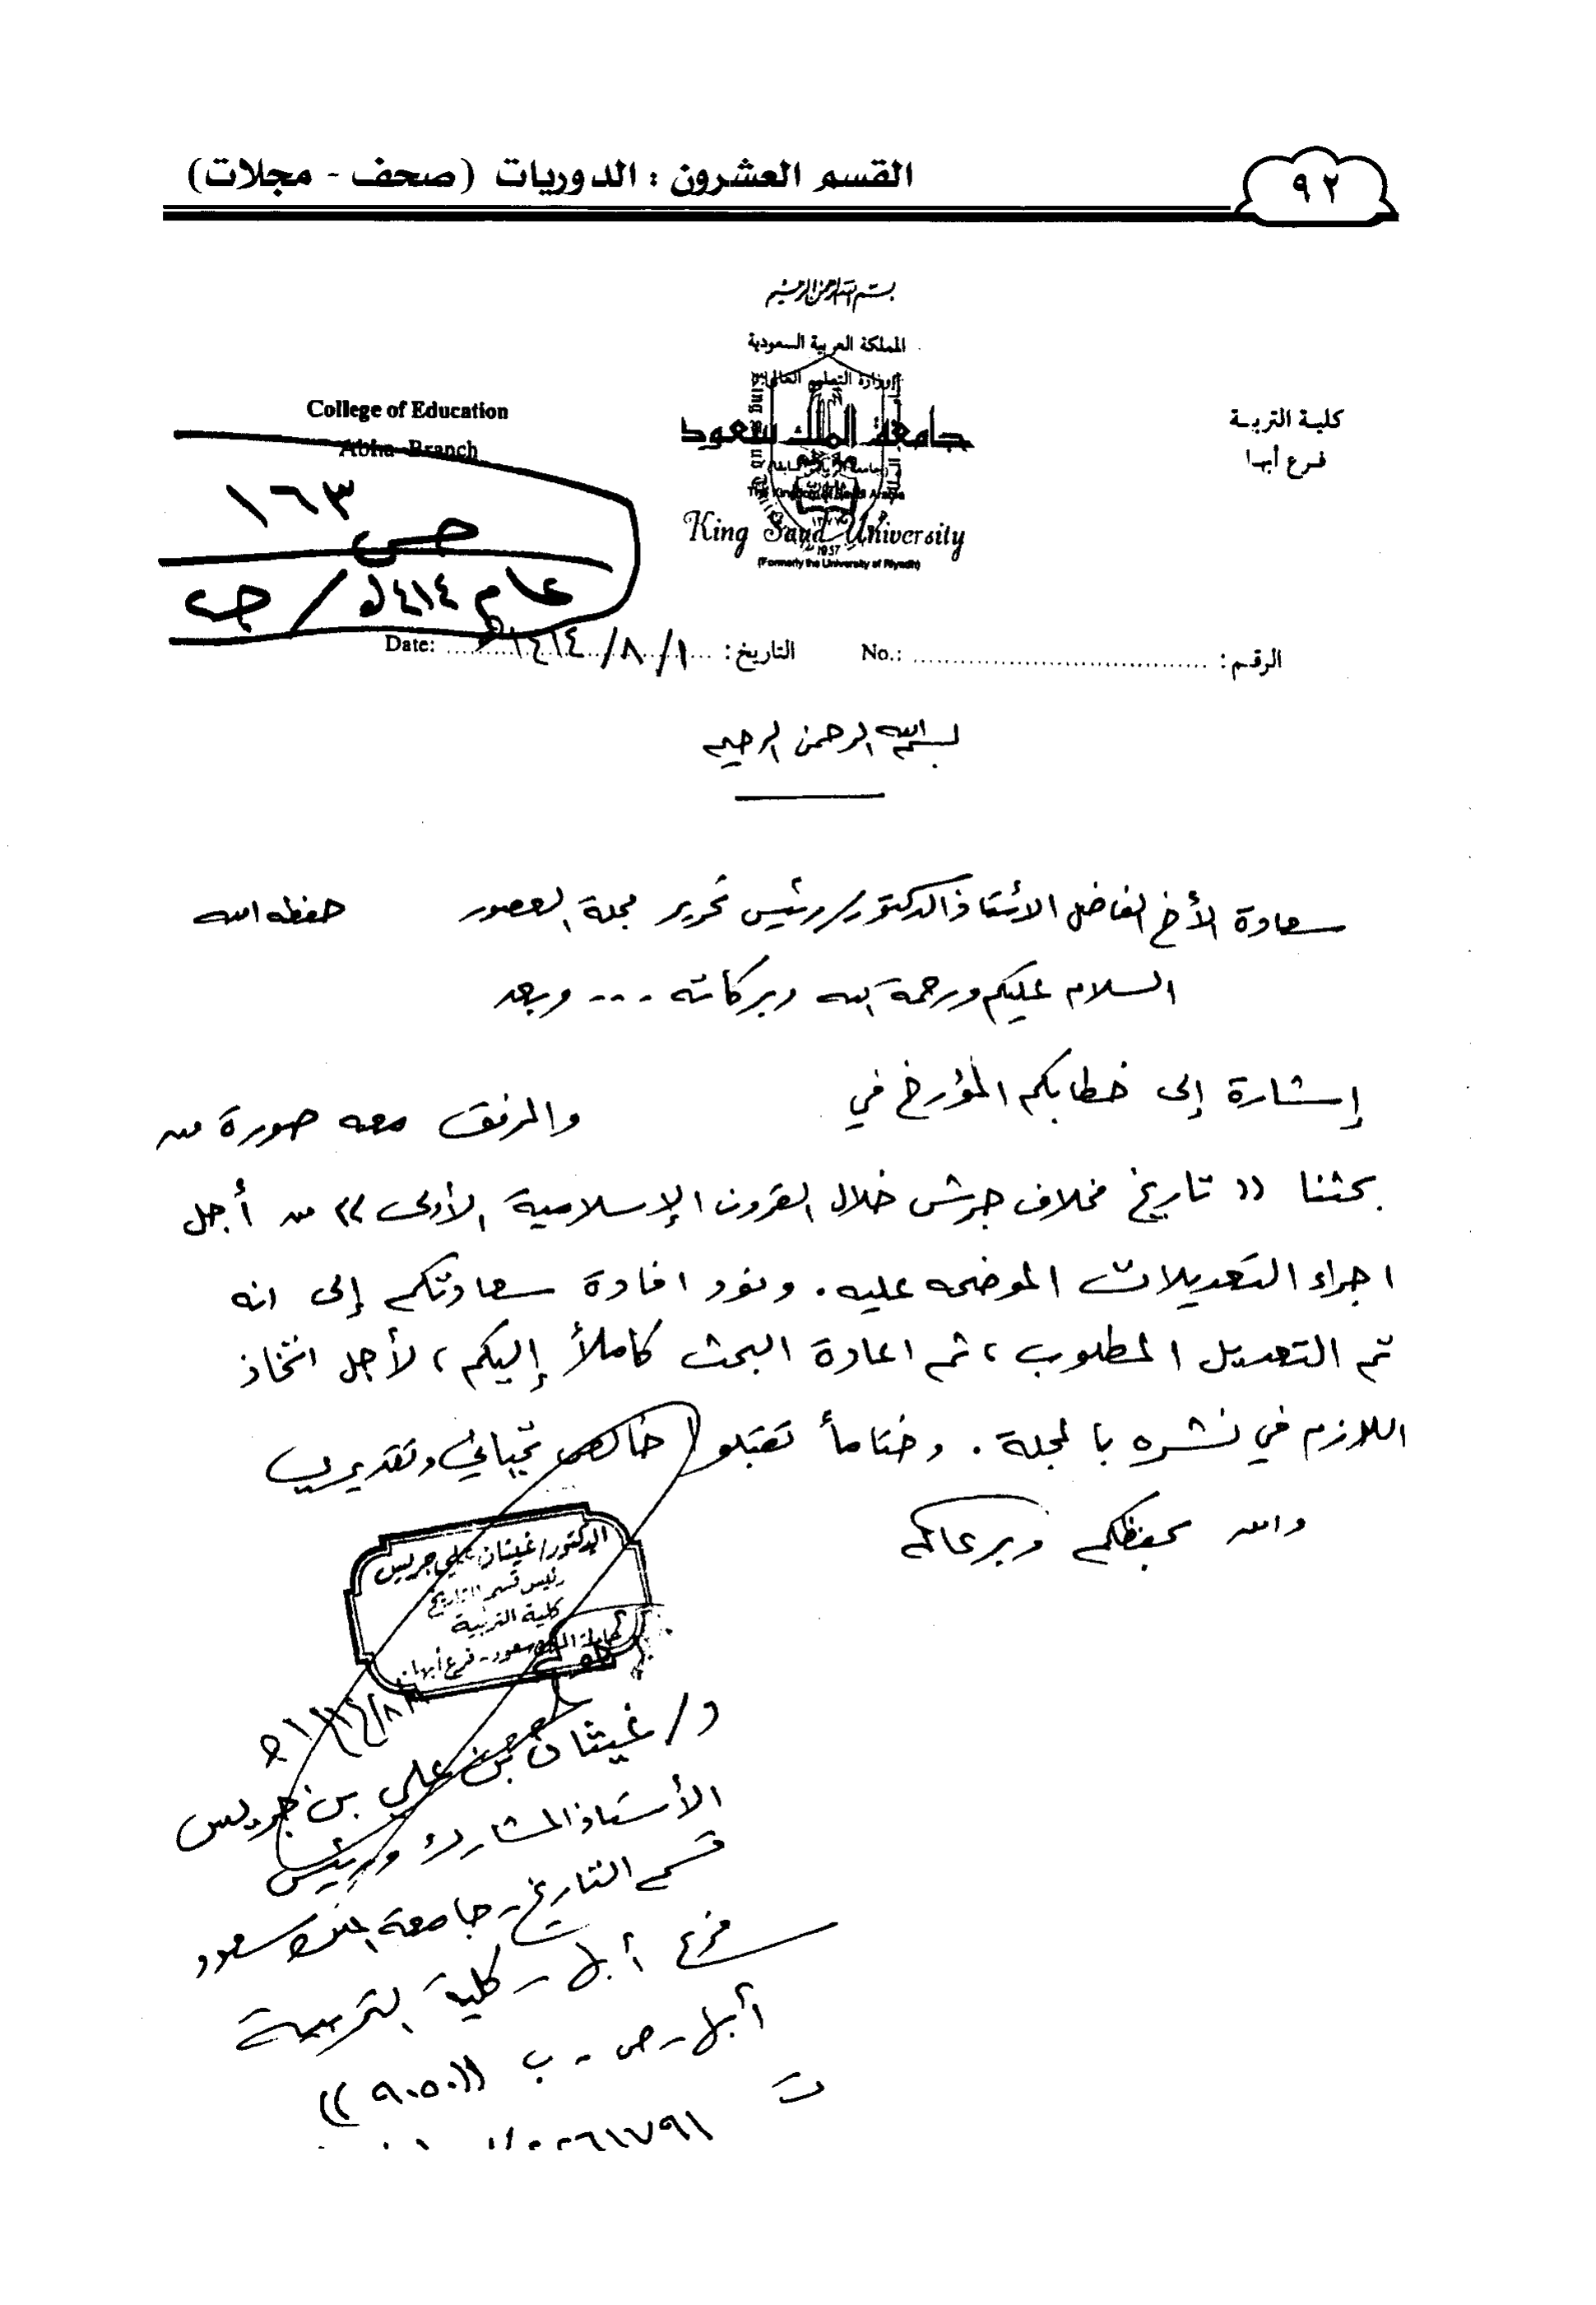 ٩٢
القسم العشرون : الدوريات (صحف - مجلات)
بسم الله الرحمن الرحيم
المملكة العربية السعودية
وزارة التعليم العالي
جامعة الملك سعود
King Saud University
1957
(Formerly the University of Riyadh)
كلية التربية
فرع أبها
College of Education
Abha Branch
ص ١٦٣
عام ١٤١٤هـ / ج
الرقم : No.:
التاريخ : ١/٨/١٤١٤هـ Date:
بسم الله الرحمن الرحيم
سعادة الأخ الفاضل الأستاذ الدكتور/ رئيس تحرير مجلة العصور حفظه الله
السلام عليكم ورحمة الله وبركاته ... وبعد
إشارة إلى خطابكم المؤرخ في والمرفق معه صورة من
بحثنا (( تاريخ مخلاف جرش خلال القرون الإسلامية الأولى )) من أجل
اجراء التعديلات الموضحه عليه . ونود افادة سعادتكم إلى انه
تم التعديل المطلوب ، ثم اعادة البحث كاملاً إليكم ، لأجل اتخاذ
اللازم في نشره بالمجلة . وختاماً تقبلوا خالص تحياتي وتقديري
والله يحفظكم ويرعاكم
الدكتور/ غيثان علي جريس
رئيس قسم التاريخ
كلية التربية
جامعة الملك سعود - فرع أبها
د/ غيثان بن علي بن جريس
الأستاذ المشارك ورئيس
قسم التاريخ - جامعة الملك سعود
فرع أبها - كلية التربية
أبها - ص . ب (( ٩٠٥٠ ))
ت